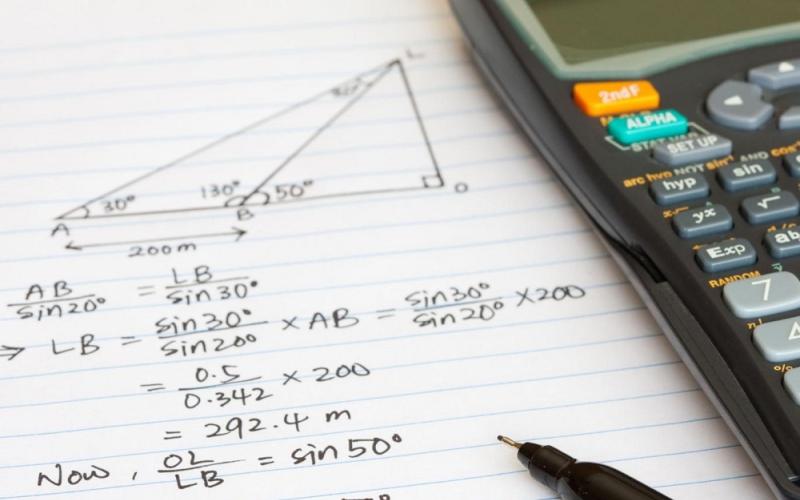 L
20°
30° 130° 50°
A B O
200m
AB/sin20° = LB/sin30°
⇒ LB = sin30°/sin20° × AB = sin30°/sin20° × 200
= 0.5/0.342 × 200
= 292.4 m
Now, OL/LB = sin 50°
2ndF
ALPHA
SET UP
arc hyp NOT sin⁻¹ AND cos⁻
hyp sin
yˣ √
Exp ab
RANDOM
7
n!
4
%